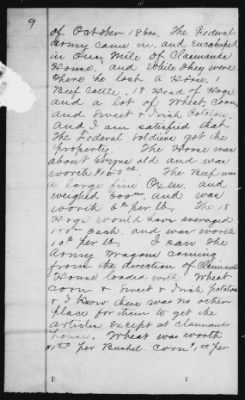 9
of October 1864. The Federal
Army came in and Encamped
in One Mile of Claimants
House, and While they were
there he lost a Horse, 1
Beef Cattle, 18 Head of Hogs
and a lot of Wheat, Corn,
and Sweet & Irish Potatoes,
And I am satisfied that
the Federal Soldiers got the
Property. The Horse was
about years old and was
worth The Beef was
a large fine Oxen, and
weighed and was
worth per lb. The 18
Hogs would have averaged
each, and was worth
10¢ per lb. I saw the
Army Wagons coming
from the direction of Claimants
House loaded with Wheat
Corn & Sweet & Irish Potatoes
& I Know there was no other
place for them to get the
articles Except at Claimants
house. Wheat was worth
per Bushel Corn per